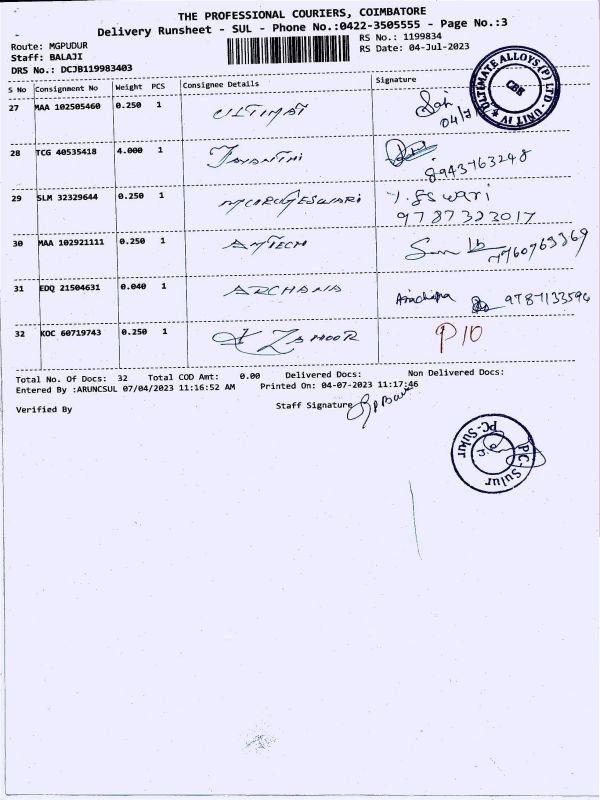 THE PROFESSIONAL COURIERS, COIMBATORE
Delivery Runsheet - SUL - Phone No.:0422-3505555 - Page No.:3
Route: MGPUDUR
RS No.: 1199834
Staff: BALAJI
RS Date: 04-Jul-2023
DRS No.: DCJB119983403
S No Consignment No Weight PCS Consignee Details Signature
27 MAA 102505460 0.250 1 ULTIMAT 04/7
ULTIMATE ALLOYS (P) LTD - UNIT IV
CBE
28 TCG 40535418 4.000 1 JAYANTHI 8943763248
29 SLM 32329644 0.250 1 MURUGESWARI Y. Eswari
9787323017
30 MAA 102921111 0.250 1 AMTECH 7760763369
31 EDQ 21504631 0.040 1 ARCHANA Archana 9787133596
32 KOC 60719743 0.250 1 P10
Total No. Of Docs: 32 Total COD Amt: 0.00 Delivered Docs: Non Delivered Docs:
Entered By :ARUNCSUL 07/04/2023 11:16:52 AM Printed On: 04-07-2023 11:17:46
Verified By Staff Signature
PC-Sulur
PC-Sulur